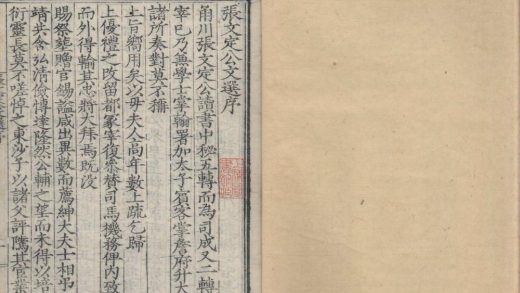 張文定公文選序
甬川張文定公讀書中秘五轉而為司成又二轉
宰巳乃兼學士掌翰署加太子賓客掌詹府升大
諸所奏對莫不播
上旨嚮用矣以母夫人高年數上疏乞歸
上優禮之改留都冢宰復叅賛司馬機務俾內致
而外得輸其忠將大拜焉既没
賜祭塟贈官錫謚咸出異數而薦紳大夫士相弔
靖共含弘清儉博達隆然公輔之望而未得以培
衍靈長莫不嗟悼之東沙子以諸父評隲其官業